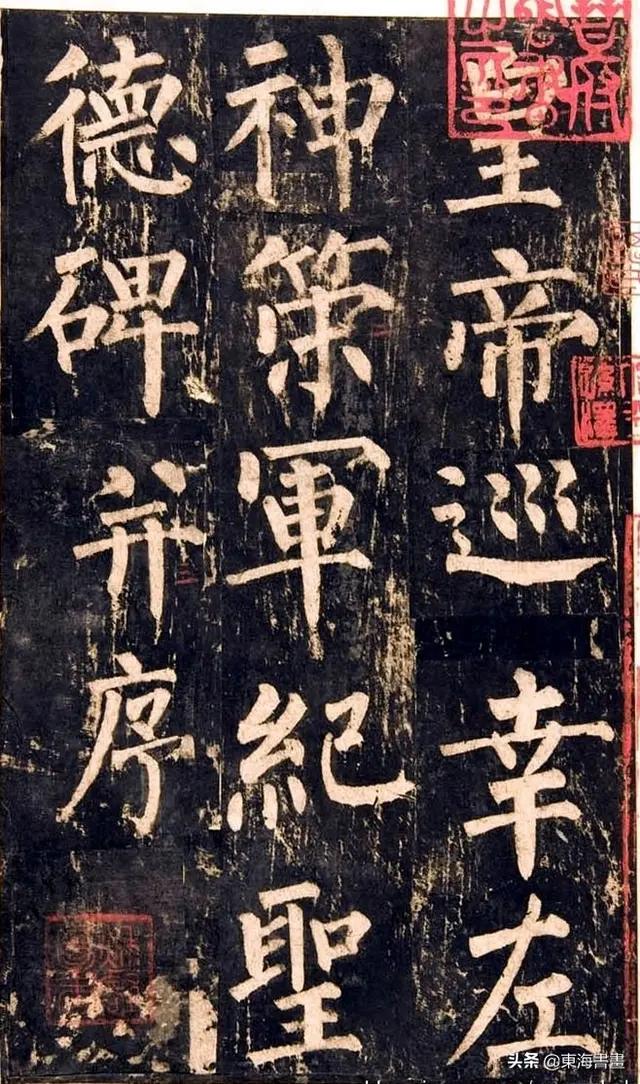 皇帝巡幸左
神策軍紀聖
德碑并序
头条 @東海書畫